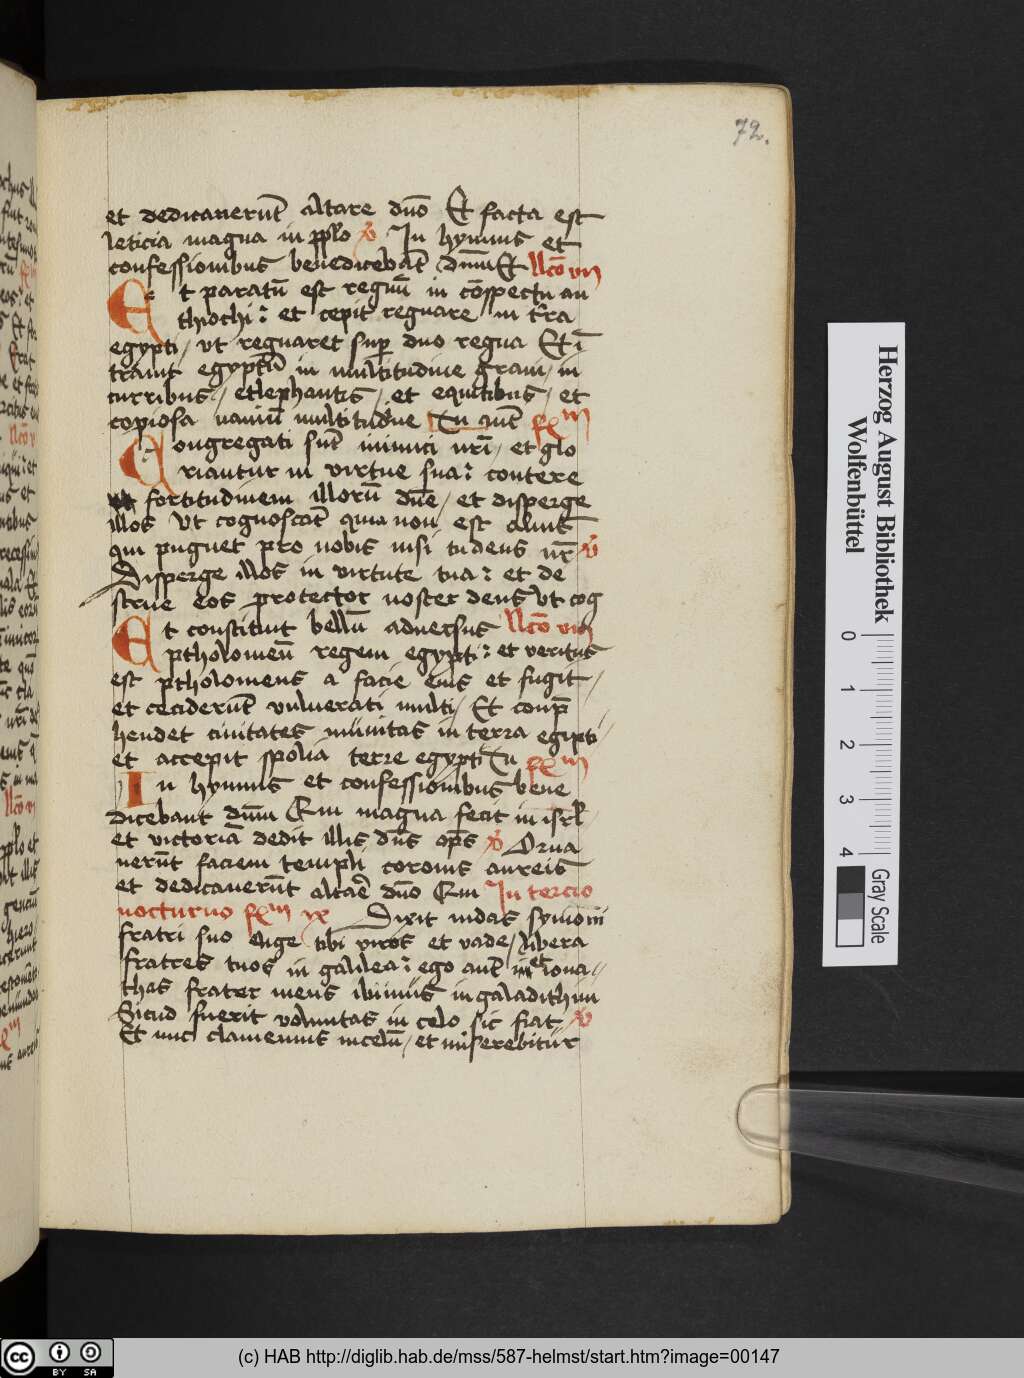 72.
et dedicauerūt altare dn̄o Et facta est
leticia magna in pplo v In hymnis et
confessionibus benedicebāt dn̄m Et llcō vii
Et paratū est regnū in cōspectu an
thiochi : et cepit regnare in tr̄a
egypti / vt regnaret sup duo regna Et ī
trauit egyptū in multitudine graui / in
curribus / et lephantis / et equitibus / et
copiosa nauiū multitudine Tu aut̄ Rm
Congregati sūt inimici nr̄i / et glo
riantur in virtue sua : contere
fortitudinem illorū dn̄e / et disperge
illos Vt cognoscāt quia non est alius
qui pugnet pro nobis nisi tu deus nr̄ v
Disperge illos in virtute tua : et de
strue eos protector noster deus Vt cog
Et constituit bellū aduersus llcō viii
ptholomeū regem egypti : et veritus
est ptholomeus a facie eius et fugit /
et ceciderūt vulnerati multi / Et conp̄
hendet ciuitates munitas in terra egipti /
et accepit spolia terre egypti Tu Rm
In hymnis et confessionibus bene
dicebant dn̄m Qui magna fecit in isrl /
et victoriā dedit illis dn̄s ops v Orna
uerūt faciem templi coronis aureis
et dedicauerūt altaē dn̄o Qui In tercio
nocturno Rm ix Dixit iudas symoni
fratri suo Elige tibi viros et vade / libera
fratres tuos in galilea : ego aut̄ et iona /
thas frater meus ibimus in galadithim
Sicud fuerit voluntas in celo sic fiat v
Et nuc clamemus in celū / et miserebitur
Herzog August Bibliothek
Wolfenbüttel
0 1 2 3 4
Gray Scale
cc BY SA
(c) HAB http://diglib.hab.de/mss/587-helmst/start.htm?image=00147